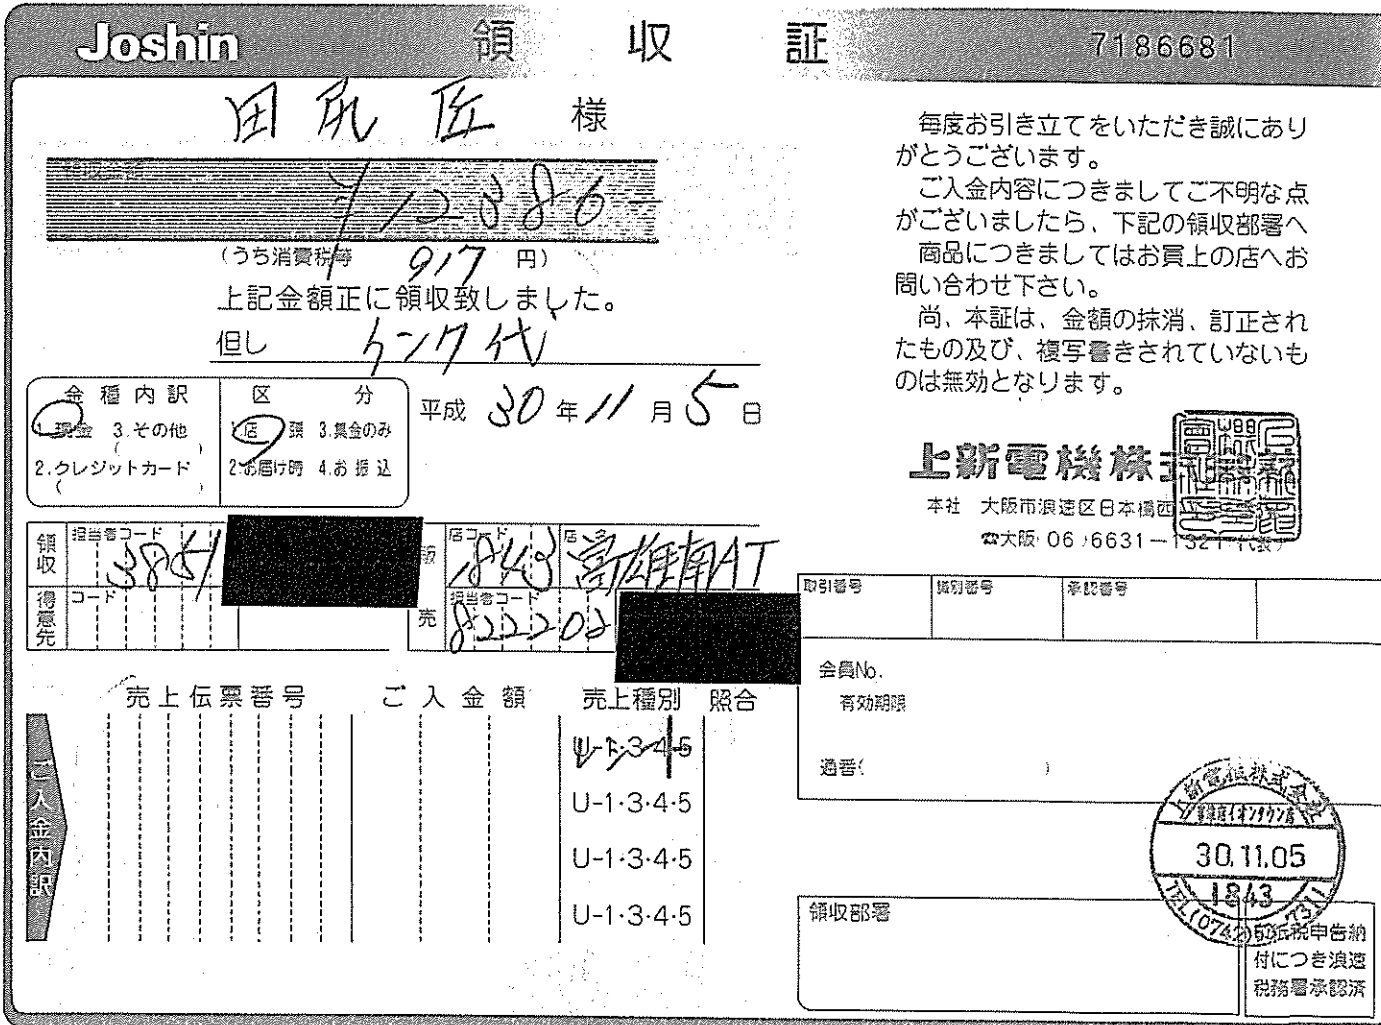 Joshin 領収証 7186681
田尻 匠 様
領収金額
¥12386-
(うち消費税等 917 円)
上記金額正に領収致しました。
但し インク代
平成 30 年 11 月 5 日
金種内訳
1.現金 3.その他
( )
2.クレジットカード
( )
区分
1.店頭 3.集金のみ
2.お届け時 4.お振込
領収 担当者コード 3851
得意先 コード
販売 店コード 1843 店名 富雄南AT
担当者コード 822202
ご入金内訳
売上伝票番号 ご入金額 売上種別 照合
U-1・3・4・5
U-1・3・4・5
U-1・3・4・5
U-1・3・4・5
毎度お引き立てをいただき誠にあり
がとうございます。
ご入金内容につきましてご不明な点
がございましたら、下記の領収部署へ
商品につきましてはお買上の店へお
問い合わせ下さい。
尚、本証は、金額の抹消、訂正され
たもの及び、複写書きされていないも
のは無効となります。
上新電機株式会社
本社 大阪市浪速区日本橋西
☎大阪(06)6631-1321(代表)
取引番号 識別番号 承認番号
会員No.
有効期限
通番( )
上新電機株式会社
30.11.05
1843
領収部署
印紙税申告納
付につき浪速
税務署承認済